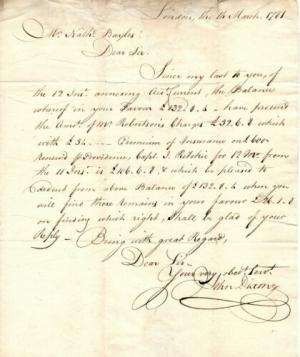 London, the 16 March, 1781
Mr. Nathl. Bayles.
Dear Sir.
Since my last to you, of
the 12 Inst. annexing Acct. Current, the Balance
whereof in your Favour £132.8.4 - I am presented
the Amot. of Mr. Robertson's Charge £32.6.8 which
with £34.. — Premium of Insurance on £600
renewed p Providence, Capt. J. Ritchie for 12 Mo. from
the 11 Inst. is £106.6.8 & which be pleased to
Deduct from above Balance of £132.8.4 when you
will find there remains in your favour £26.1.8
on finding which right, shall be glad of your
Reply — Being with great Regard,
Dear Sir —
Your very obedt. Servt.
John